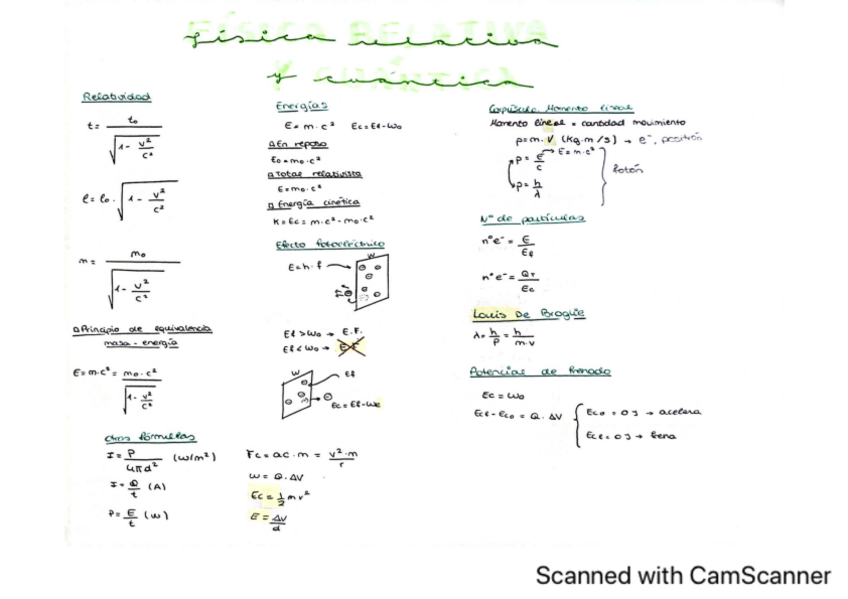 física relativa
y cuántica
Relatividad
t = t₀ / √(1 - v²/c²)
ℓ = ℓ₀ · √(1 - v²/c²)
m = m₀ / √(1 - v²/c²)
Principio de equivalencia
masa - energía
E = m·c² = m₀·c² / √(1 - v²/c²)
Otras fórmulas
I = P / 4πd² (W/m²)
I = Q/t (A)
P = E/t (W)
Energías
E = m·c² Ec = Ef - W₀
En reposo
E₀ = m₀·c²
Total relativista
E = m₀·c²
Energía cinética
K = Ec = m·c² - m₀·c²
Efecto fotoeléctrico
W
E = h·f
Ef > W₀ → E.F.
Ef < W₀ → E.F
W
Ef
Ec = Ef - We
Fc = ac·m = v²·m / r
W = Q·ΔV
Ec = ½ mv²
E = ΔV/d
Corpúsculo. Momento lineal
Momento lineal = cantidad movimiento
p = m·v (Kg·m/s) → e⁻, positrón
p = E/c → E = m·c²
p = h/λ
fotón
Nº de partículas
nºe⁻ = E/Ef
nºe⁻ = QT/Ec
Louis De Brogüe
λ = h/p = h/m·v
Potencias de frenado
Ec = W₀
Ecf - Ec₀ = Q·ΔV
Ec₀ = 0J → acelera
Ecf = 0J → frena
Scanned with CamScanner